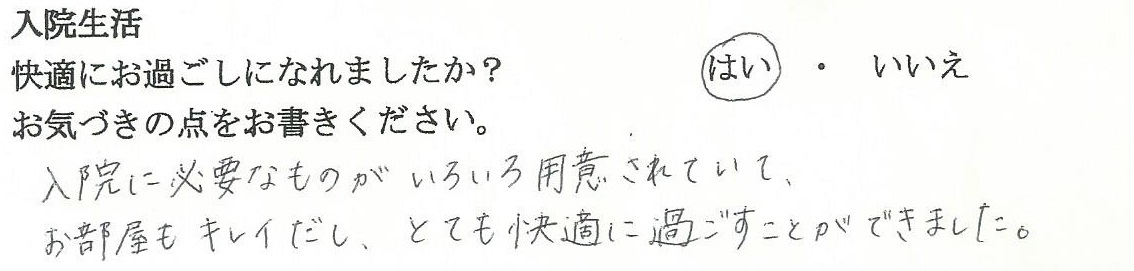 入院生活
快適にお過ごしになれましたか？ はい ・ いいえ
お気づきの点をお書きください。
入院に必要なものがいろいろ用意されていて、
お部屋もキレイだし、とても快適に過ごすことができました。